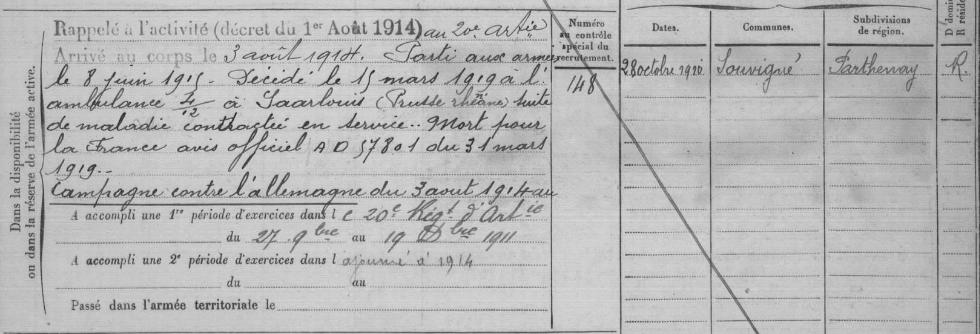 Dans la disponibilité
ou dans la réserve de l'armée active.
Rappelé à l'activité (décret du 1er Août 1914) au 20e Artie
Arrivé au corps le 3 août 1914. Parti aux armées
le 8 juin 1915. Décédé le 15 mars 1919 à l'
ambulance 4/12 à Saarlouis (Prusse rhénane) suite
de maladie contractée en service.. Mort pour
la France avis officiel AD 57801 du 31 mars
1919.-
Campagne contre l'allemagne du 3 aout 1914 au
A accompli une 1re période d'exercices dans le 20e Régt d'Artie
du 27 9bre au 19 Dbre 1911
A accompli une 2e période d'exercices dans l ajourné à 1914
du au
Passé dans l'armée territoriale le
Numéro
au contrôle
spécial du
recrutement.
148
Dates. Communes. Subdivisions
de région. D domi
R réside
28 octobre 1910 Souvigné Parthenay R.